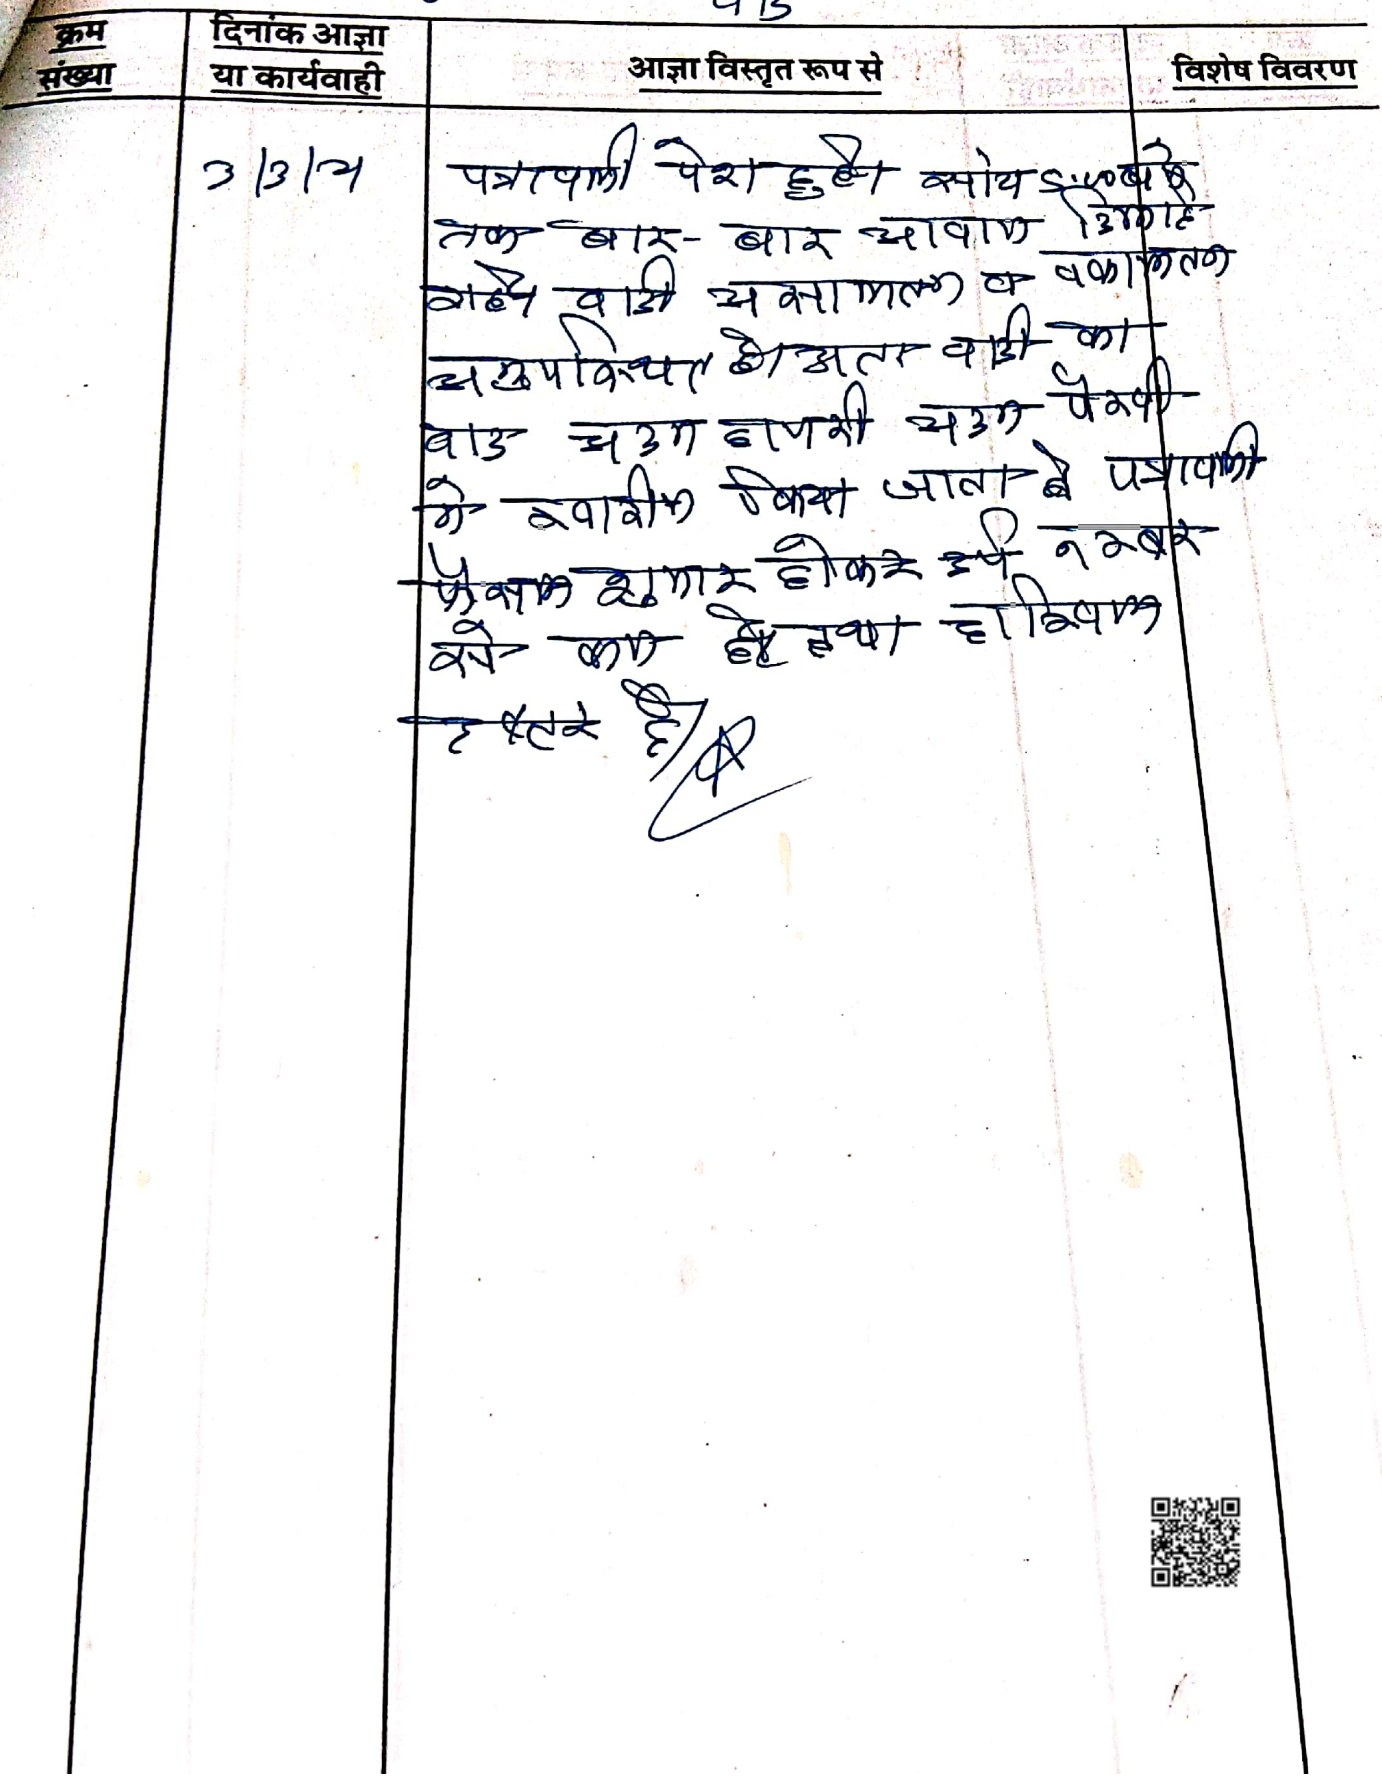 क्रम संख्या
दिनांक आज्ञा या कार्यवाही
आज्ञा विस्तृत रूप से
विशेष विवरण
पत्रावली पेश हुई।
तक बार-बार आवाज
गई। वादी असालतन व वकालतन
अनुपस्थित है। अतः वादी का
वाद अदम हाजरी अदम पैरवी
में खारीज किया जाता है पत्रावली
फैसल शुमार होकर नम्बर
से कम हो तथा